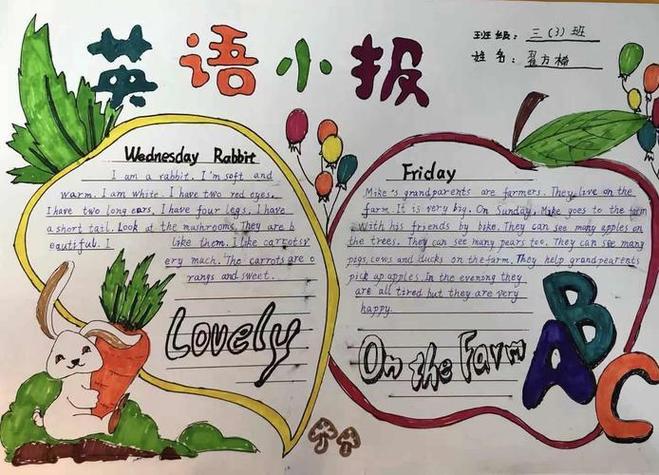 英语小报
班级：三(3)班
姓名：翟方楠
Wednesday Rabbit
I am a rabbit. I'm soft and
warm. I am white. I have two red eyes.
I have two long ears. I have four legs. I have
a short tail. Look at the mushrooms. They are b
eautiful. I like them. I like carrotsv
ery much. The carrots are o
rangs and sweet.
Lovely
Friday
Mike's grandparents are farmers. They live on the
farm. It is very big. On Sunday, Mike goes to the farm
with his friends by bike. They can see many apples on
the trees. They can see many pears too. They can see many
pigs, cows and ducks on the farm. They help grandpearents
pick up apples. In the evening they
are all tired but they are very
happy.
On the Farm
A B C